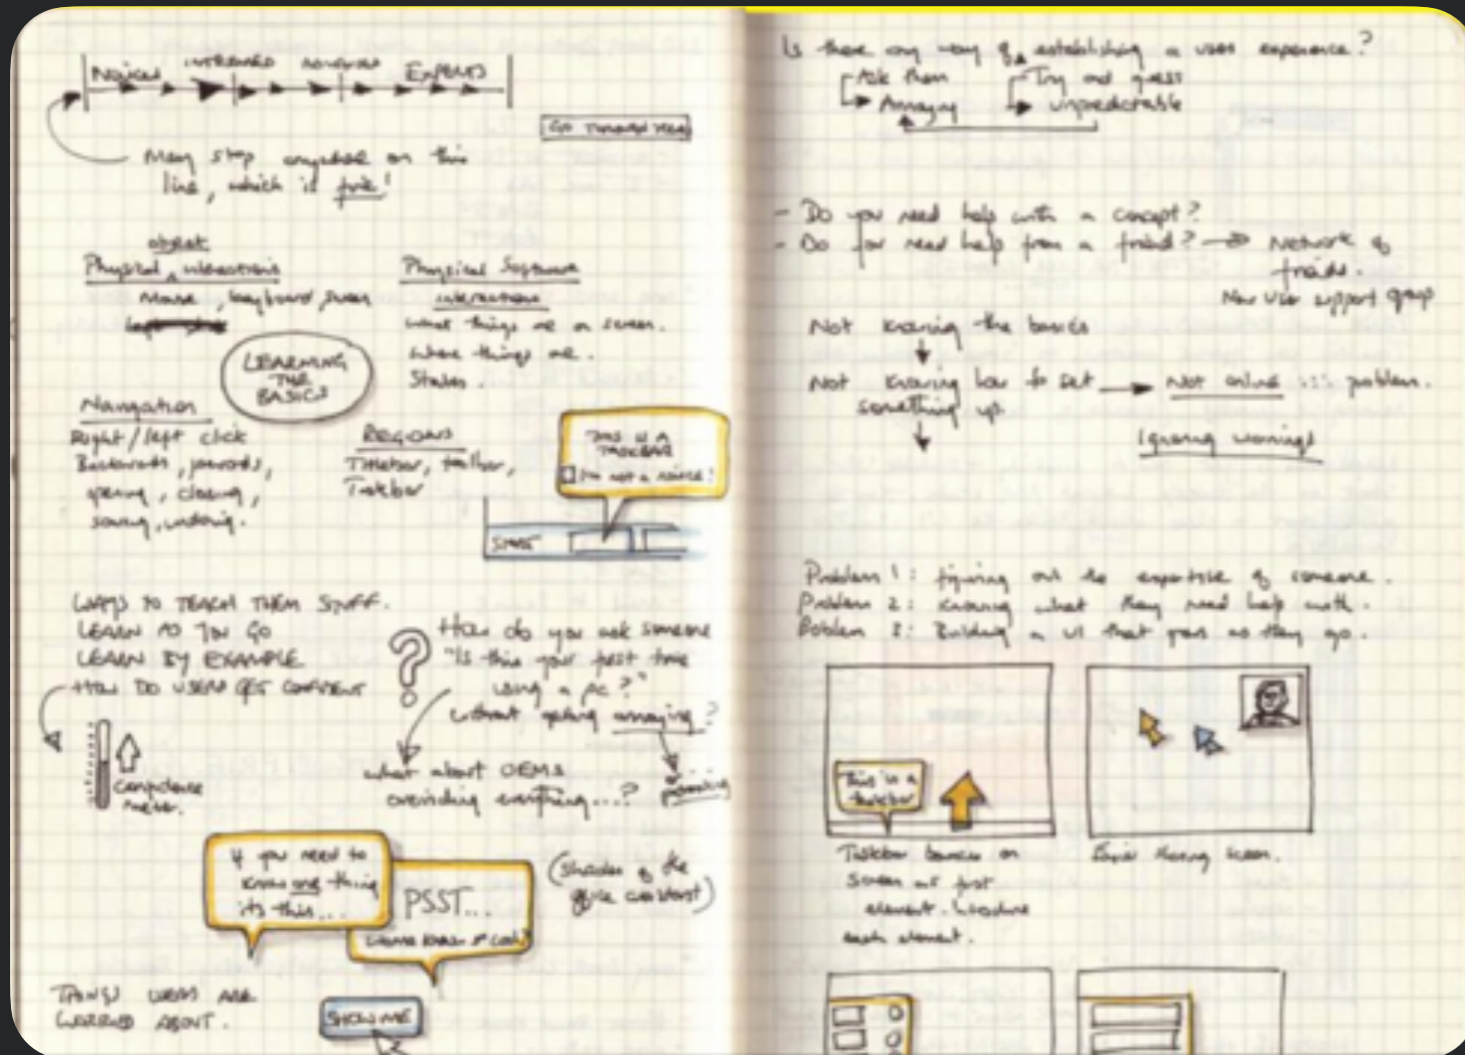 NOVICES INTERMED ADVANCED EXPERTS
GO THROUGH MENU
May stop anywhere on this
line, which is fine!
object
Physical interactions
Mouse, keyboard, screen
Physical Software
interactions
What things are on screen.
Where things are.
States.
LEARNING
THE
BASICS
Navigation
Right/left click
Backwards, forwards,
opening, closing,
saving, undoing.
REGIONS
Titlebar, toolbar,
Taskbar
THIS IS A
TASKBAR
I'm not a novice!
START
WAYS TO TEACH THEM STUFF.
LEARN AS YOU GO
LEARN BY EXAMPLE
HOW DO USERS GET CONFIDENT
Confidence
meter.
?
How do you ask someone
"Is this your first time
using a pc?"
without getting annoying?
What about OEMS
overriding everything...?
If you need to
know one thing
its this...
PSST...
Wanna know sth cool?
(Shades of the
office assistant)
THINGS USERS ARE
WORRIED ABOUT.
SHOW ME
Is there any way of establishing a users experience?
Ask them
Annoying
Try and guess
unpredictable
- Do you need help with a concept?
- Do you need help from a friend? → Network of
friends.
New User support group
Not knowing the basics
Not knowing how to set
something up.
Not online problem.
Ignoring warnings
Problem 1: figuring out the expertise of someone.
Problem 2: knowing what they need help with.
Problem 3: Building a UI that goes as they go.
This is a
taskbar
Taskbar bounces on
screen as first
element. Introduce
each element.
Easier sharing screen.